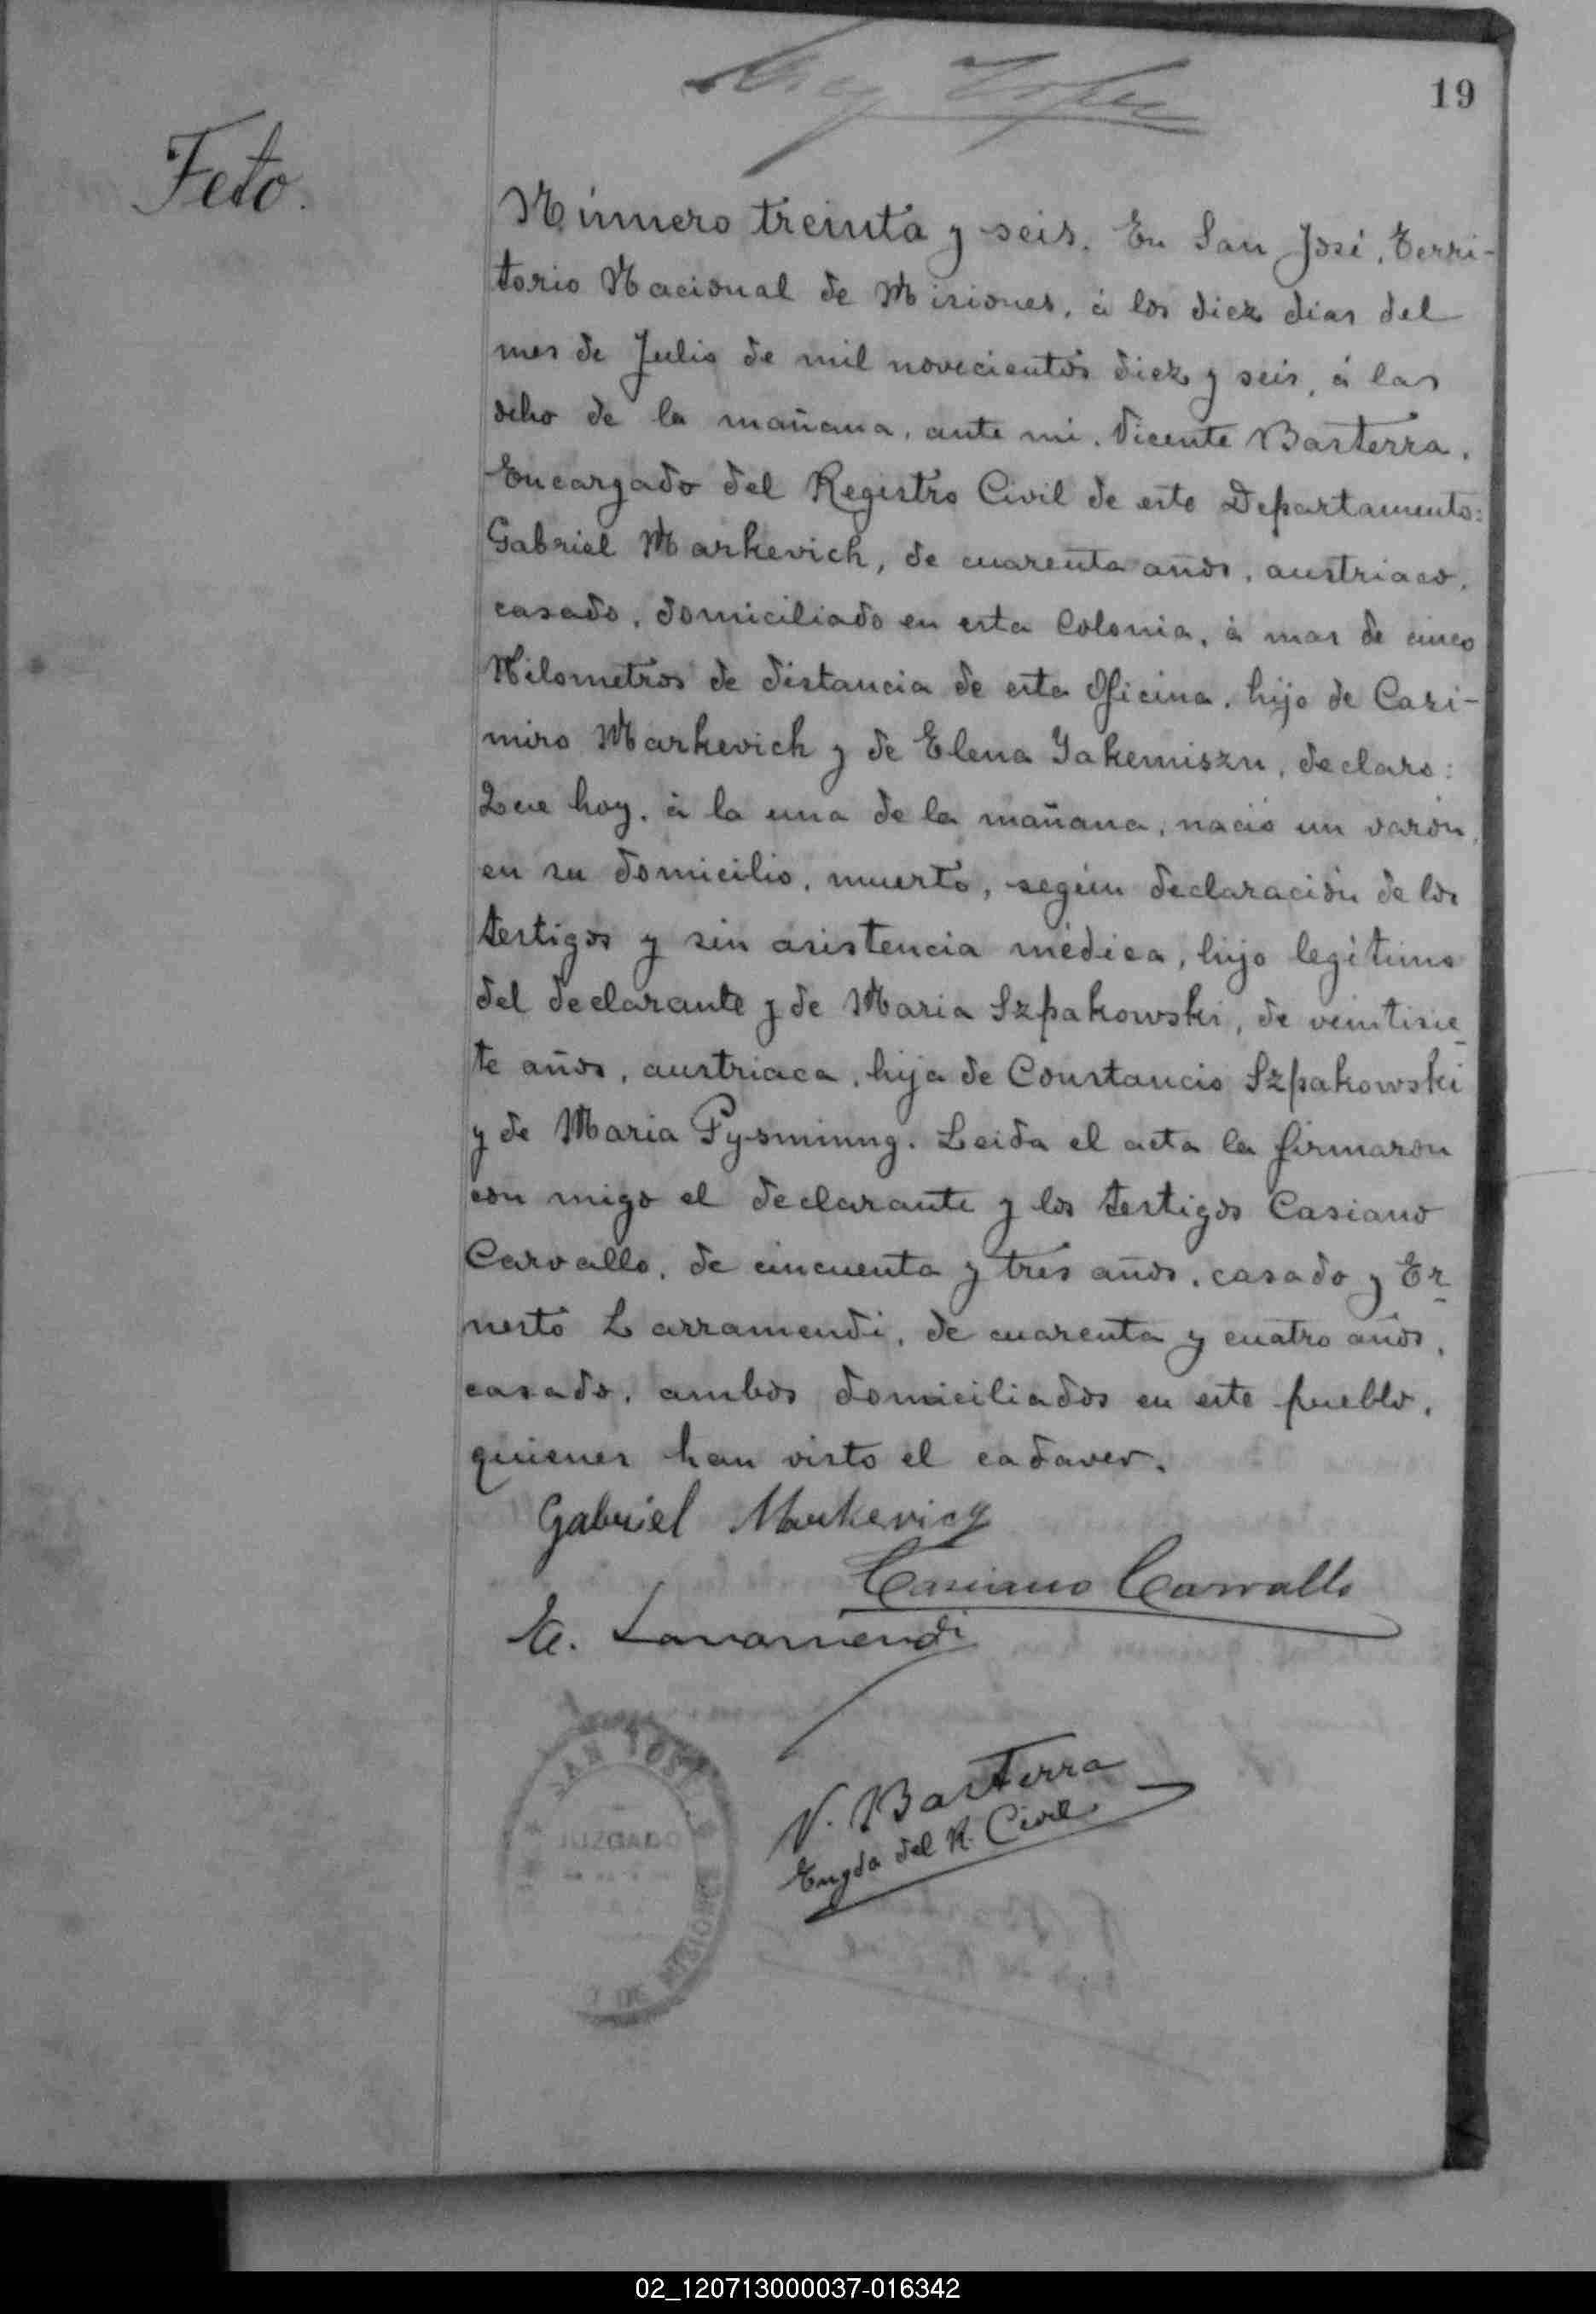 19
Feto.
Número treinta y seis. En San José, Terri-
torio Nacional de Misiones, á los diez dias del
mes de Julio de mil novecientos diez y seis, á las
ocho de la mañana, ante mi, Vicente Basterra,
Encargado del Registro Civil de este Departamento:
Gabriel Markevich, de cuarenta años, austriaco,
casado, domiciliado en esta Colonia, á mas de cinco
Kilometros de distancia de esta Oficina, hijo de Casi-
miro Markevich y de Elena Yakemiszn, declaro:
Que hoy, á la una de la mañana, nació un varón,
en su domicilio, muerto, según declaración de los
testigos y sin asistencia médica, hijo legítimo
del declarante y de Maria Szpakowski, de veintisie
te años, austriaca, hija de Constancio Szpakowski
y de Maria Pysminng. Leida el acta la firmaron
con migo el declarante y los testigos Casiano
Carvallo, de cincuenta y tres años, casado y Er
nesto Larramendi, de cuarenta y cuatro años,
casado, ambos domiciliados en este pueblo,
quienes han visto el cadaver.
Gabriel Markevicz
Casiano Carvallo
E. Larramendi
SAN JOSE
JUZGADO
DE MISIONES
V. Basterra
Engdo del R. Civil
02_120713000037-016342